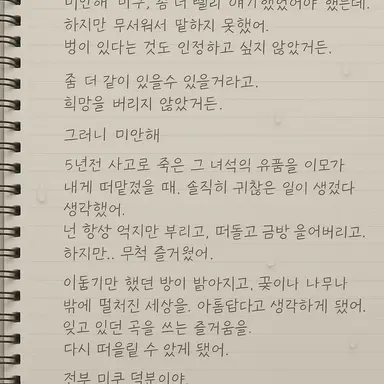 미안해 미쿠, 좀 더 빨리 얘기했었어야 했는데.
하지만 무서워서 말하지 못했어.
병이 있다는 것도 인정하고 싶지 않았거든.
좀 더 같이 있을수 있을거라고.
희망을 버리지 않았거든.
그러니 미안해
5년전 사고로 죽은 그 녀석의 유품을 이모가
내게 떠맡겼을 때, 솔직히 귀찮은 일이 생겼다
생각했어.
넌 항상 억지만 부리고, 떠들고 금방 울어버리고.
하지만.. 무척 즐거웠어.
어둡기만 했던 방이 밝아지고, 꽃이나 나무나
밖에 펼처진 세상을. 아톰답다고 생각하게 됐어.
잊고 있던 곡을 쓰는 즐거움을.
다시 떠올릴 수 았게 됐어.
전부 미쿠 덕분이야.